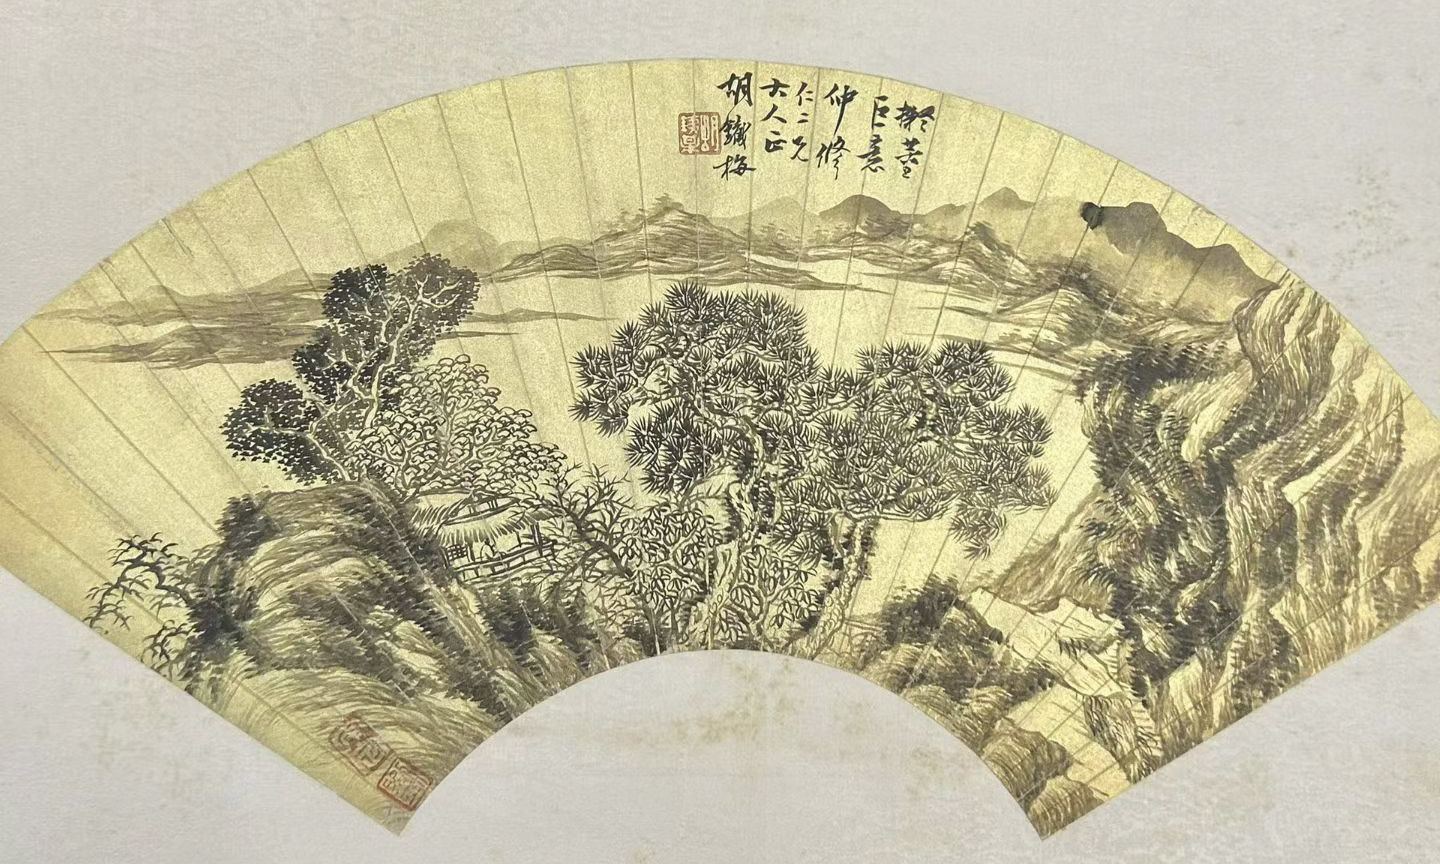 擬董
巨意
仲修
仁二兄
大人正
胡鐵梅